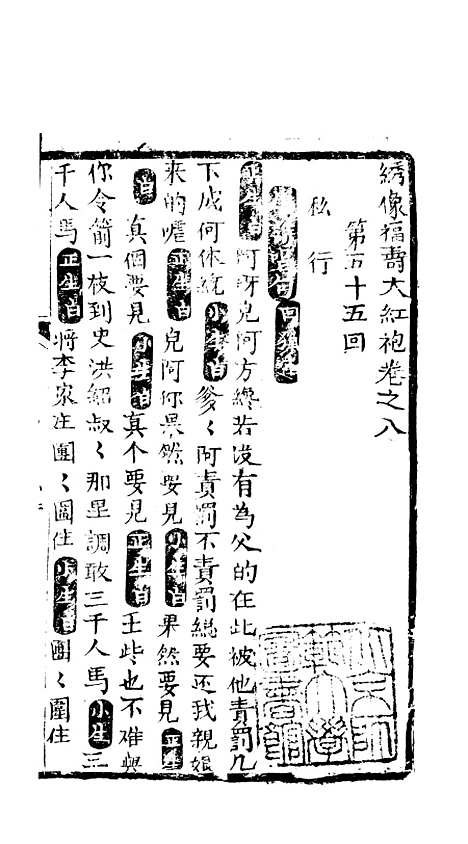 綉像福壽大紅袍卷之八
第五十五回
私行
正生白 阿呀兒阿方纔若沒有為父的在此被他責罰几
下成何体統 小生白 爹〻阿責罰不責罰總要还我親娘
來的嚛 正生白 兒阿你果然要見 小生白 果然要見 正生
白 真個要見 小生白 真个要見 正生白 王些也不难與
你令箭一枝到史洪紹叔〻那里調敢三千人馬 小生 三
千人馬 正生白 將李家庄團〻圍住 小生白 團〻圍住